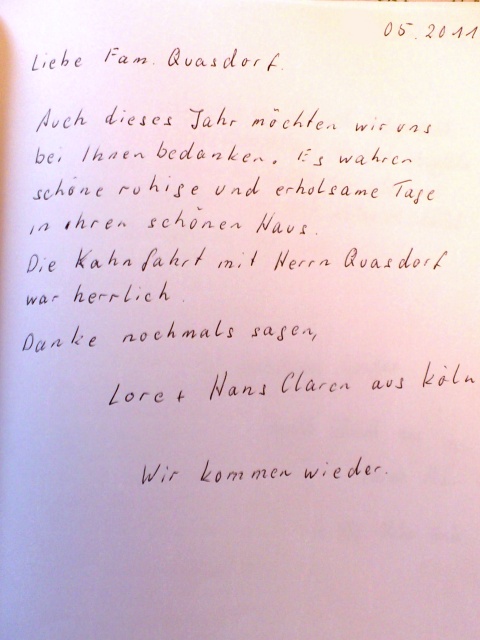 05.2011
Liebe Fam. Quasdorf.
Auch dieses Jahr möchten wir uns
bei Ihnen bedanken. Es wahren
schöne ruhige und erholsame Tage
in ihren schönen Haus.
Die Kahnfahrt mit Herrn Quasdorf
war herrlich.
Danke nochmals sagen,
Lore + Hans Claren aus Köln
Wir kommen wieder.